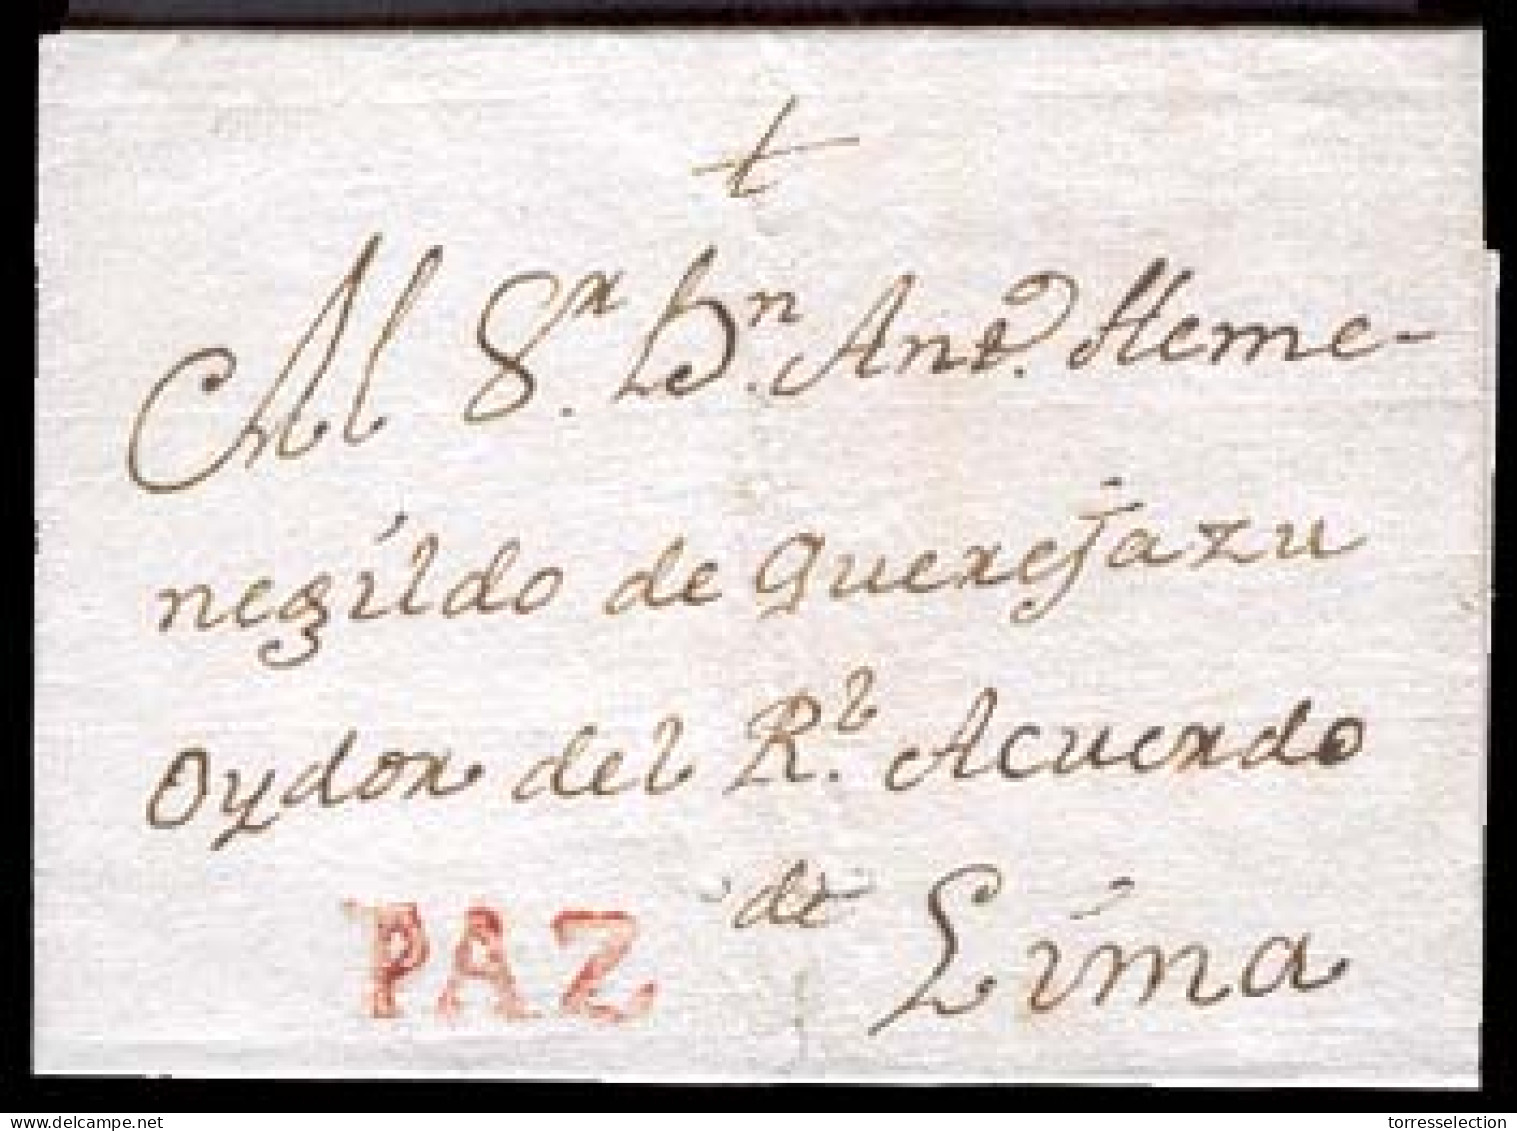 †
Al Sr. Dn. Anto. Heme-
negíldo de Querejazu
Oydor del Rl. Acuerdo
de Líma
PAZ
delcampe.net
torresselection